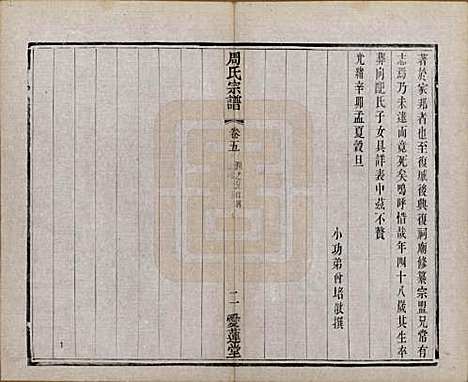 著於家邦者也至復振後興復祠廟修纂宗盟兄常有
志焉乃未遂而竟死矣嗚呼惜哉年四十八歲其生卒
葬向配氏子女具詳表中茲不贅
光緒辛卯孟夏穀旦
小功弟曾培敬撰
周氏宗譜
卷五
二
愛蓮堂